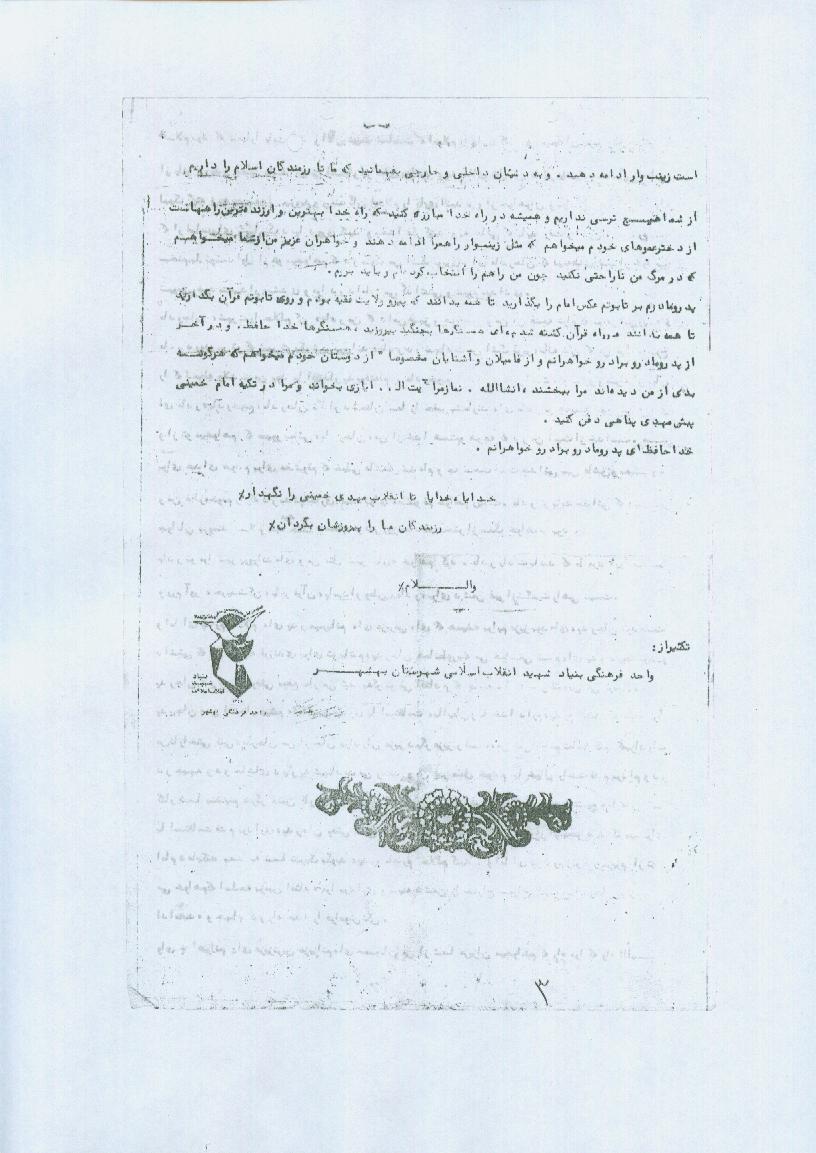 است زینب وار ادامه دهید . و به دشمنان داخلی و خارجی بفهمانید که ما تا رزمندگان اسلام را داریم
از شما هیچ ترسی نداریم و همیشه در راه خدا مبارزی کنید که راه خدا بهترین و ارزنده ترین راههاست
از دخترعموهای خودم میخواهم که مثل زینب وار راهمرا ادامه دهند و خواهران عزیز من از شما میخواهم
که در مرگ من ناراحتی نکنید چون من راهم را انتخاب کرده ام و باید بروم .
پدر و مادرم بر تابوتم عکس امام را بگذارید تا همه بدانند که پیرو ولایت فقیه بودم و روی تابوتم قرآن بگذارید
تا همه بدانند در راه قرآن کشته شدم ، ای همسنگرها بجنگید پیروزید ، همسنگرها خدا حافظ . و در آخر
از پدر و مادر و برادر و خواهرانم و از فامیلان و آشنایان مخصوصا " از دوستان خودم میخواهم که هرگونه
بدی از من دیده اند مرا ببخشند ، انشاالله . نماز مرا آیت ال... ایازی بخواند و مرا در تکیه امام خمینی
پیش مهدی پناهی دفن کنید .
خدا حافظ ای پدر و مادر و برادر و خواهرانم .
خدایا ، خدایا تا انقلاب مهدی خمینی را نگهدار٪
رزمندگان ما را پیروزشان بگردان٪
والسلام٪
تکثیر از :
واحد فرهنگی بنیاد شهید انقلاب اسلامی شهرستان بهشهر
بنیاد
شهید
انقلاب اسلامی
واحد فرهنگی بهشهر
۳